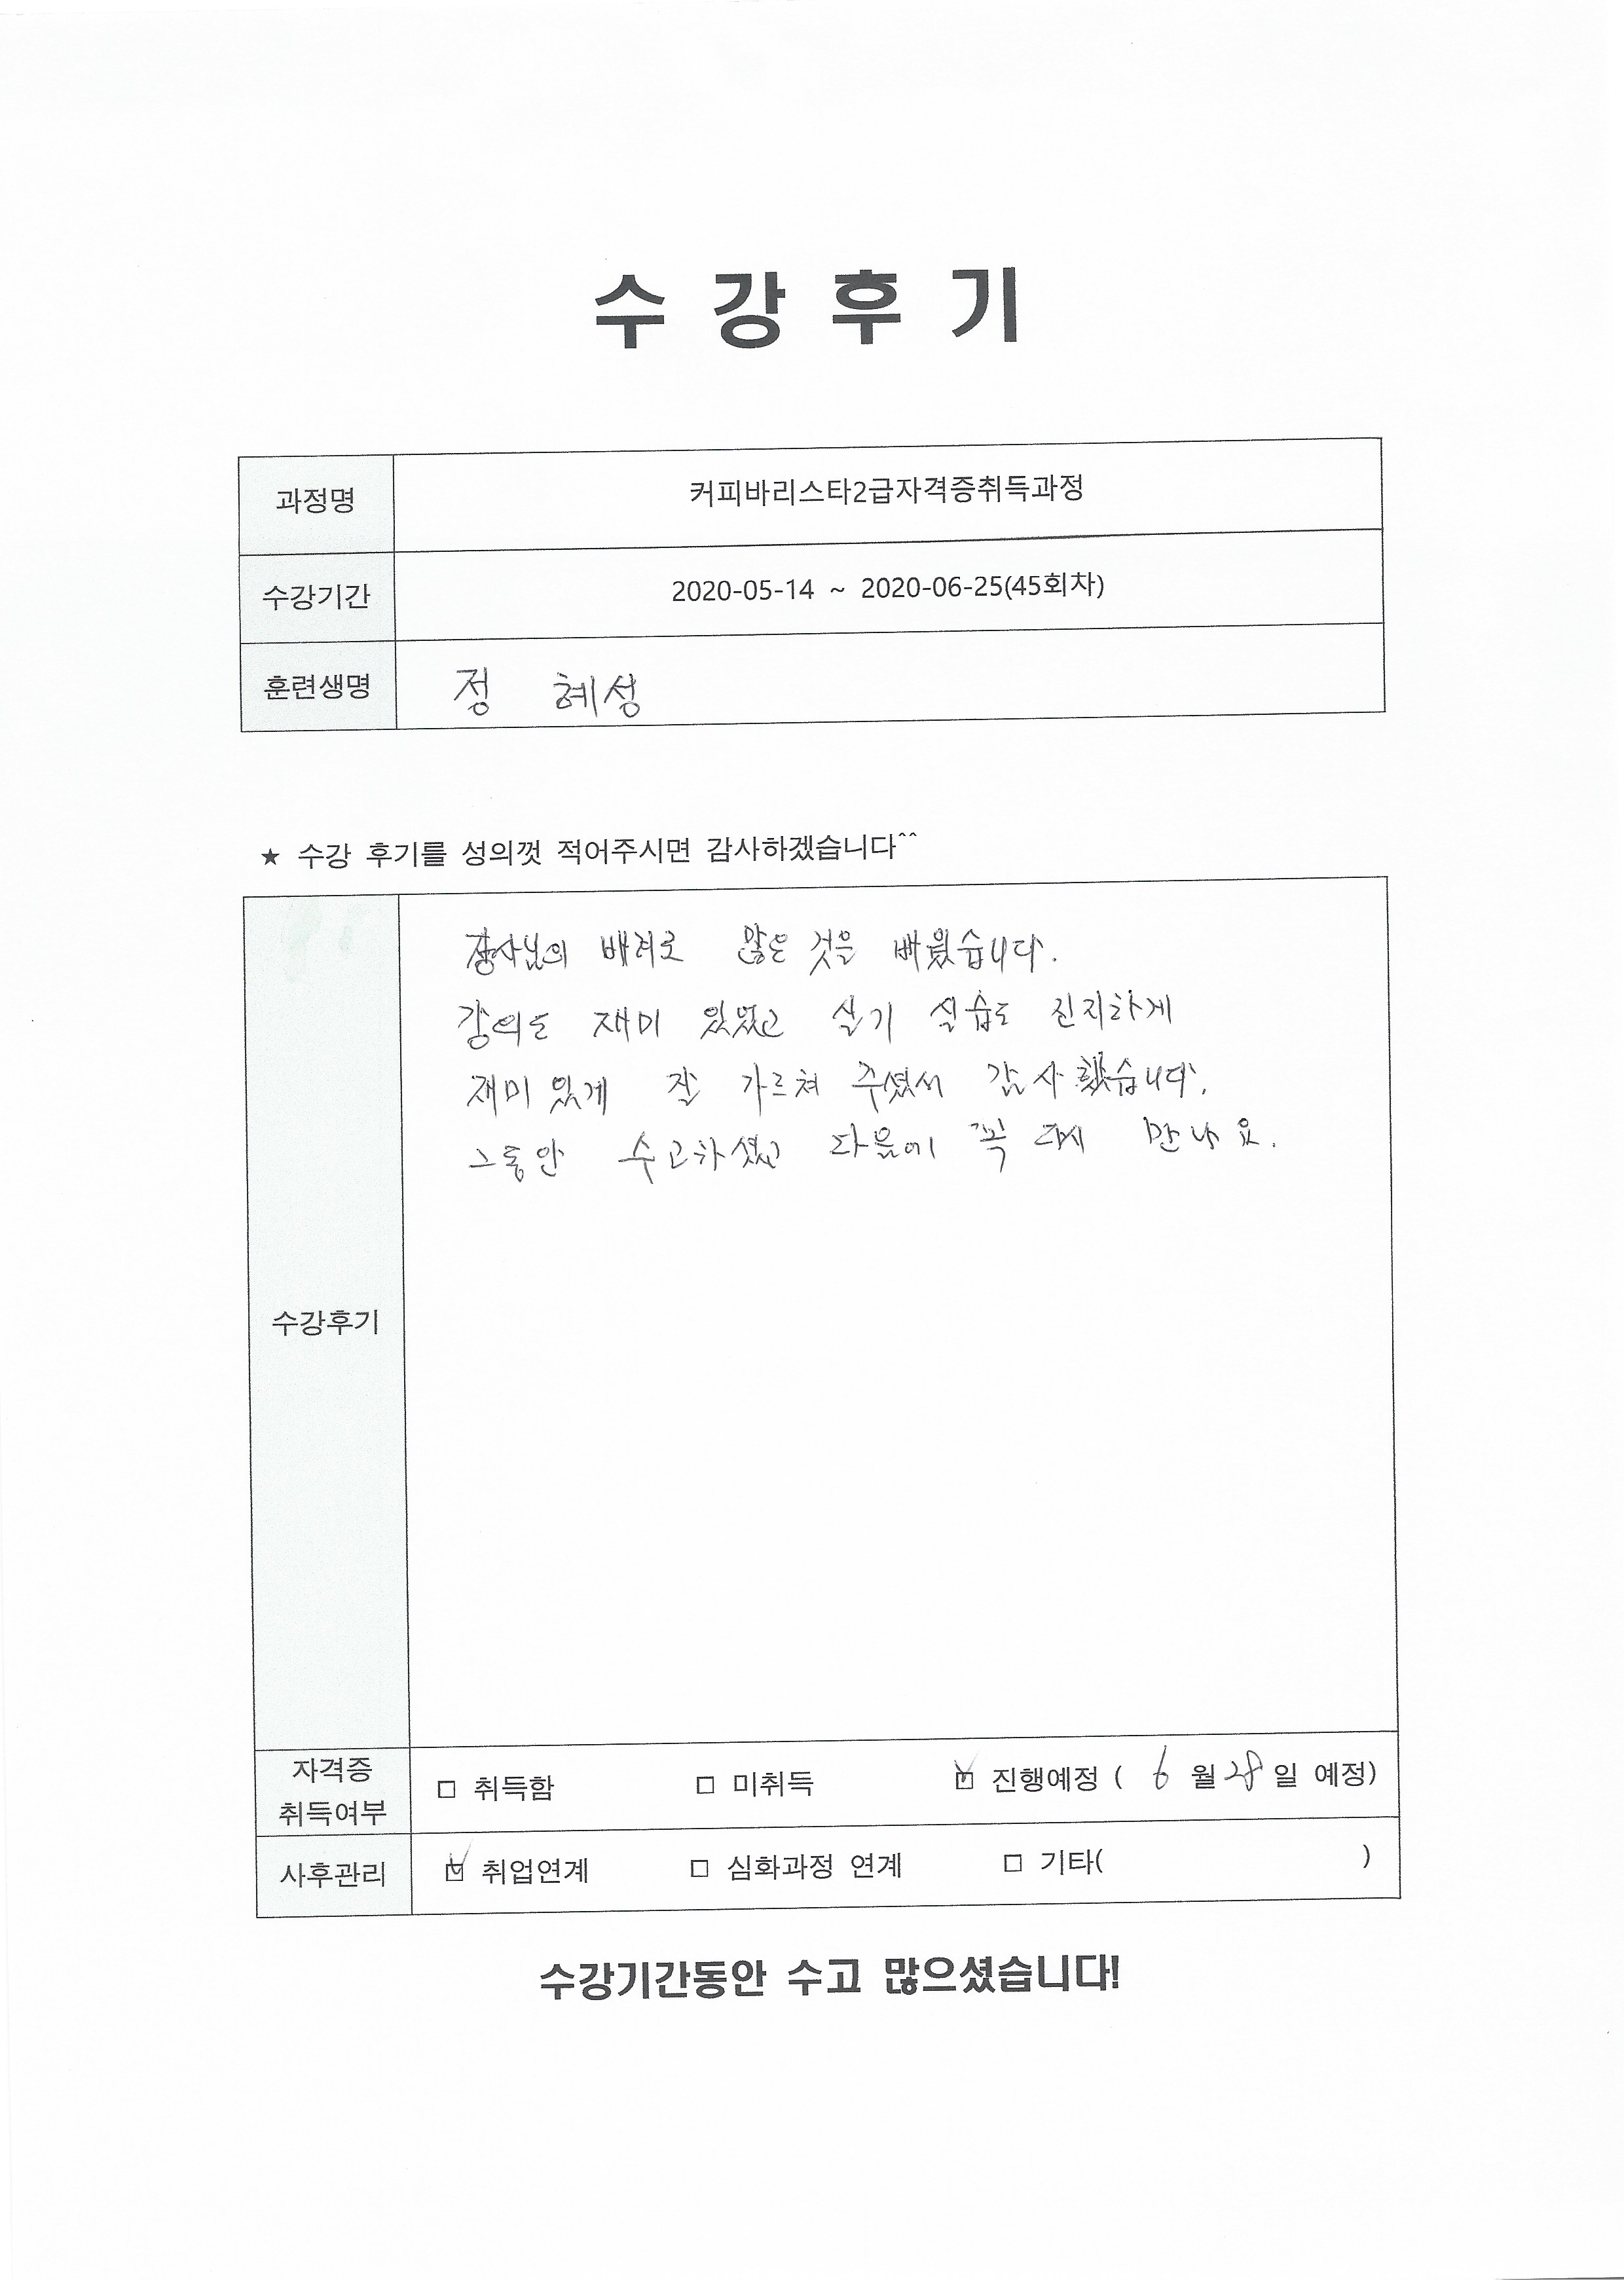 수 강 후 기
과정명 커피바리스타2급자격증취득과정
수강기간 2020-05-14 ~ 2020-06-25(45회차)
훈련생명 정 혜성
★ 수강 후기를 성의껏 적어주시면 감사하겠습니다^^
강사님의 배려로 많은 것을 배웠습니다.
강의도 재미 있었고 실기 실습도 진지하게
재미있게 잘 가르쳐 주셨서 감사했습니다.
그동안 수고하셨고 다음에 꼭 만나요.
수강후기
자격증
취득여부
□ 취득함 □ 미취득 ☑ 진행예정 ( 6 월 28 일 예정)
사후관리 ☑ 취업연계 □ 심화과정 연계 □ 기타( )
수강기간동안 수고 많으셨습니다!